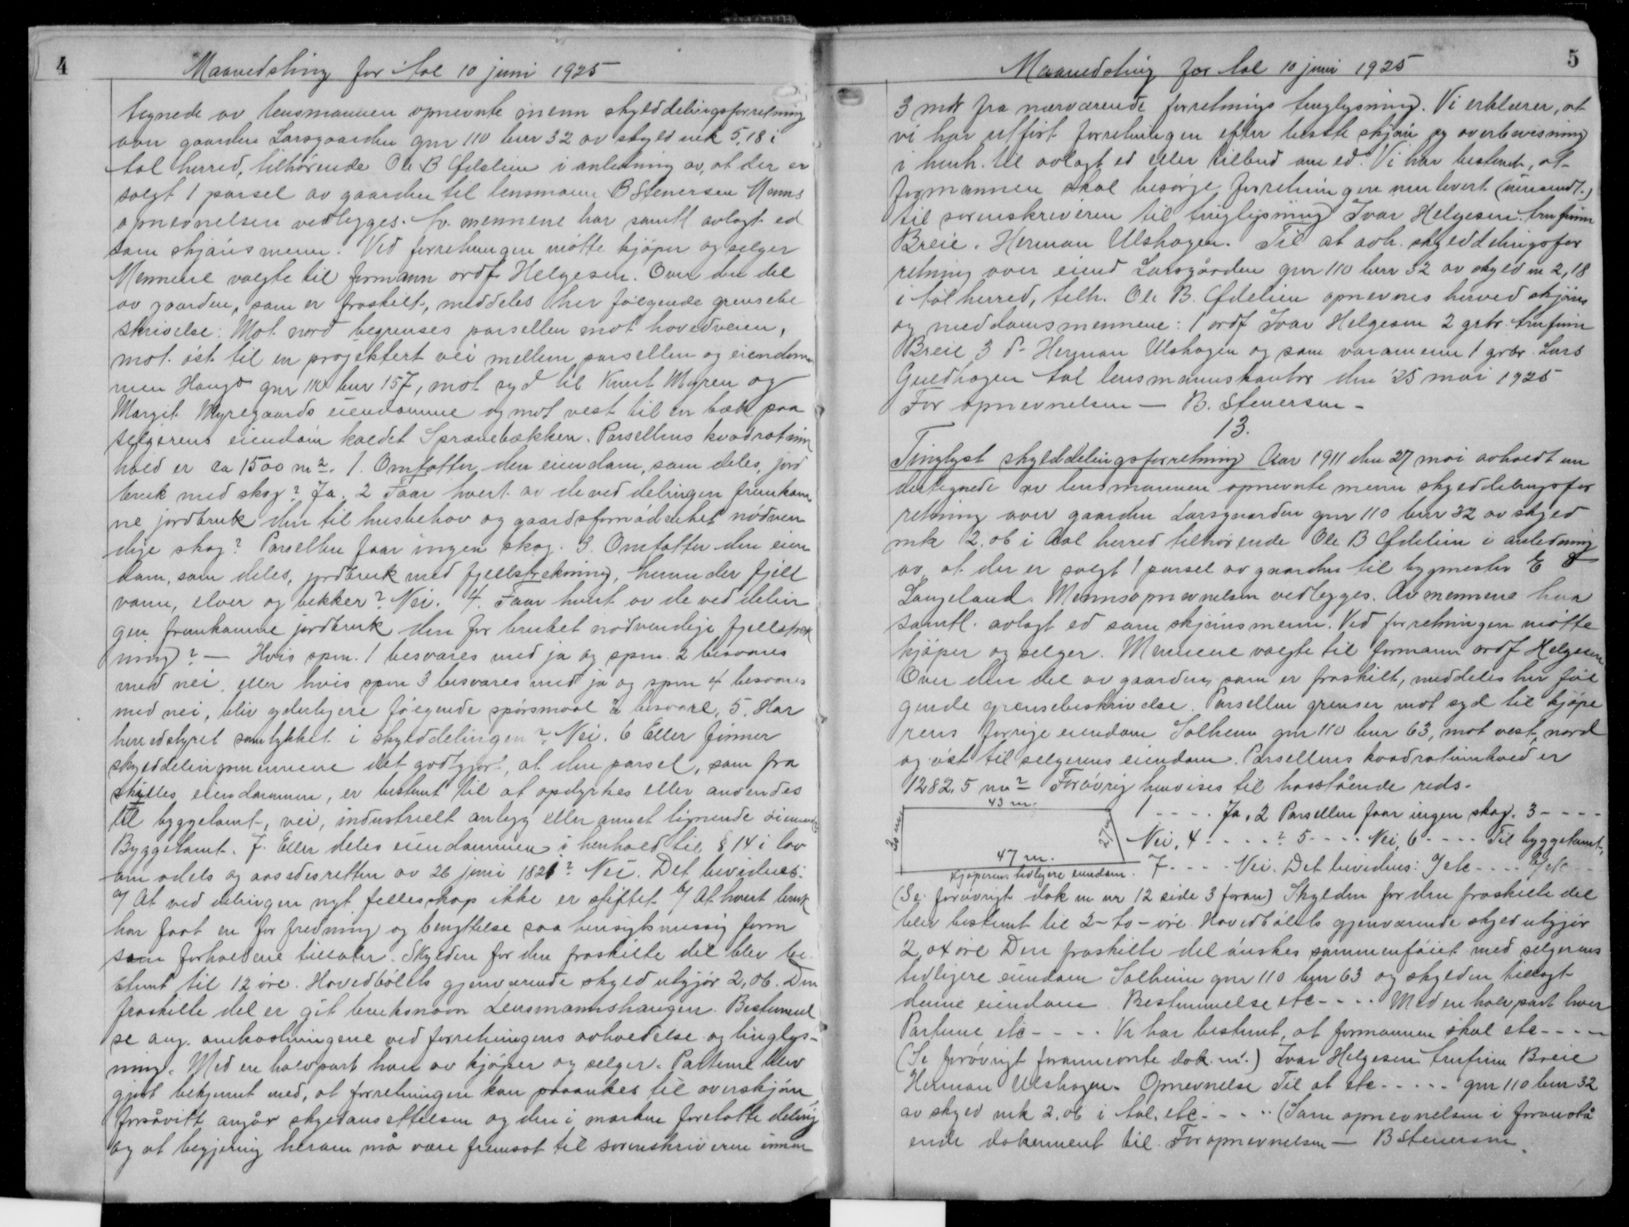 4
Maanedsting for Aal 10 juni 1925
tegnede av lensmannen opnevnte menn skylddelingsforretning
over gaarden Larsgaarden gnr 110 bnr 32 av skyld mk 5,18 i
Aal herred, tilhørende Ole B Ødelien i anledning av, at der er
solgt 1 parsel av gaarden til lensmann B Stenersen Menns
opnevnelsen vedlegges. Av mennene har samtl avlagt ed
som skjønsmenn. Ved forretningen møtte kjøper og selger
Mennene valgte til formann ordf Helgesen. Over den del
av gaarden, som er fraskilt, meddeles her følgende grensebe
skrivelse: Mot nord begrenses parsellen mot hovedveien,
mot øst til en projektert vei mellem parsellen og eiendom
men Haugo gnr 110 bnr 157, mot syd til Knut Myren og
Margit Myregaards eiendomme og mot vest til en bæk paa
selgerens eiendom kaldet Sprænebækken. Parsellens kvadratinn
hold er ca 1500 m². 1. Omfatter den eiendom, som deles, jord
bruk med skog? Ja. 2 Faar hvert av de ved delingen fremkom
ne jordbruk den til husbehov og gaardsfornødenhet nødven
dige skog? Parsellen faar ingen skog. 3. Omfatter den eien
dom, som deles, jordbruk med fjellstrekning, herunder fjell
vann, elver og bekker? Nei. 4. Faar hvert av de ved delin
gen fremkomne jordbruk den for bruket nødvendige fjellstrek
ning? — Hvis spm. 1 besvares med ja og spm. 2 besvares
med nei, eller hvis spm 3 besvares med ja og spm 4 besvares
med nei, blir yderligere følgende spørsmaal å besvare, 5. Har
herredstyret samtykket i skylddelingen? Nei. 6 Eller finner
skylddelingsmennene det godtgjort, at den parsel, som fra
skilles eiendommen, er bestemt til at opdyrkes eller anvendes
til byggetomt, vei, industrielt anlegg eller annet lignende øiemed?
Byggetomt. 7. Eller deles eiendommen i henhold til § 14 i lov
om odels og aasædesretten av 26 juni 1821? Nei. Det bevidnes:
a/ At ved delingen nyt fellesskap ikke er stiftet b/ At hvert bruk
har faat en for fredning og benyttelse saa hensigtsmessig form
som forholdene tillater. Skylden for den fraskilte del blev be
stemt til 12 øre. Hovedbølets gjenværende skyld utgjør 2,06. Den
fraskilte del er git bruksnavn Lensmannshaugen. Bestemmel
se ang. omkostningene ved forretningens avholdelse og tinglys-
ning. Med en halvpart hver av kjøper og selger. Partene blev
gjort bekjennt med, at forretningen kan paaankes til overskjøn,
forsåvitt angår skyldansettelsen og den i marken foretatte deling
og at begjæring herom må være fremsat til sorenskriveren innen
5
Maanedsting for Aal 10 juni 1925
3 mdr fra nærværende forretnings tinglysning. Vi erklærer, at
vi har utført forretningen efter beste skjøn og overbevisning
i henh. til avlagt ed eller tilbud om ed. Vi har bestemt, at
formannen skal besørge forretningen levert (innsendt)
til sorenskriveren til tinglysning Ivar Helgesen. Trufinn
Breie. Herman Ulshagen. Til at avh. skylddelingsfor
retning over eiend Larsgården gnr 110 bnr 32 av skyld m 2,18
i Aal herred, tilh. Ole B. Ødelien opnevnes herved skjøns
og meddomsmennene: 1 ordf Ivar Helgesen 2 grbr. Trufinn
Breie 3 d- Herman Ulshagen og som varamenn 1 grbr Lars
Guldhagen Aal lensmannskontor den 25 mai 1925
For opnevnelsen — B. Stenersen -
13.
Tinglyst skylddelingsforretning Aar 1911 den 27 mai avholdt un
dertegnede av lensmannen opnevnte menn skylddelingsfor
retning over gaarden Larsgaarden gnr 110 bnr 32 av skyld
mk 2.06 i Aal herred tilhørende Ole B Ødelien i anledning
av, at der er solgt 1 parsel av gaarden til bygmester E O
Langeland. Mennsopnevnelsen vedlegges. Av mennene har
samtl. avlagt ed som skjønsmenn. Ved forretningen møtte
kjøper og selger. Mennene valgte til formann ordf Helgesen
Over den del av gaarden, som er fraskilt, meddeles her føl
gende grensebeskrivelse. Parsellen grenser mot syd til kjøpe
rens forrige eiendom Solheim gnr 110 bnr 63, mot vest, nord
og øst til selgerens eiendom. Parsellens kvadratinnhold er
1282,5 m² Forøvrig henvises til hosstående reds.
43 m.
1 - - - - Ja. 2 Parsellen faar ingen skog. 3 - - - -
30 m
27
Nei, 4 - - - - ? 5 - - - - Nei, 6 - - - - Til byggetomt,
47 m.
Kjøperens tidligere eiendom.
7 - - - - Nei. Det bevidnes: a/ etc - - - - b/ etc - -
(Se forøvrigt dok m nr 12 side 3 foran) Skylden for den fraskilte del
blev bestemt til 2 - to - øre. Hovedbølets gjenværende skyld utgjør
2,04 øre Den fraskilte del ønskes sammenføiet med selgerens
tidligere eiendom Solheim gnr 110 bnr 63 og skylden tillagt
denne eiendom. Bestemmelse etc - - - - Med en halvpart hver
Partene etc - - - - Vi har bestemt, at formannen skal etc - - - -
(Se forøvrigt forannevnte dok. nr.) Ivar Helgesen Trufinn Breie
Herman Ulshagen. Opnevnelse Til at etc - - - - - gnr 110 bnr 32
av skyld mk 2.06 i Aal, etc - - - - (Som opnevnelsen i foranstå
ende dokument til. For opnevnelsen — B Stenersen.